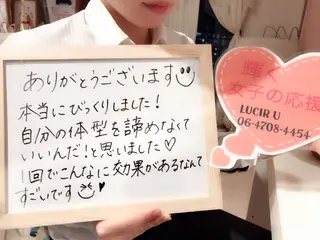 ありがとうございます
本当にびっくりしました！
自分の体型を諦めなくて
いいんだ！と思いました♡
1回でこんなに効果があるなんて
すごいです♥
輝く
女子の応援
LUCIR U
06-4708-4454